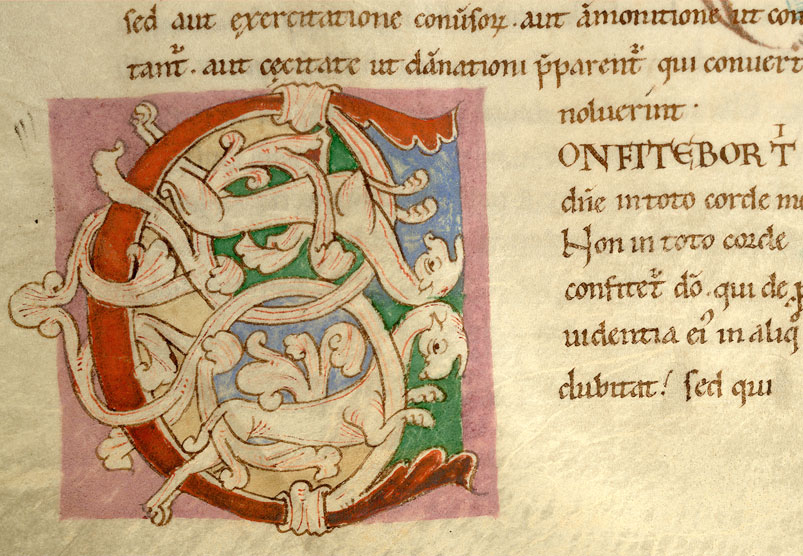 sed aut exercitatione conuersoꝝ. aut āmonitione ut con
tant᷑. aut cęcitate ut dānationi p̄parent᷑ qui conuert
noluerint.
CONFITEBOR TI
dn̄e in toto corde me
Non in toto corde
confitet᷑ dō. qui de ꝓ
uidentia ei᷒ in aliq̇
dubitat! sed qui